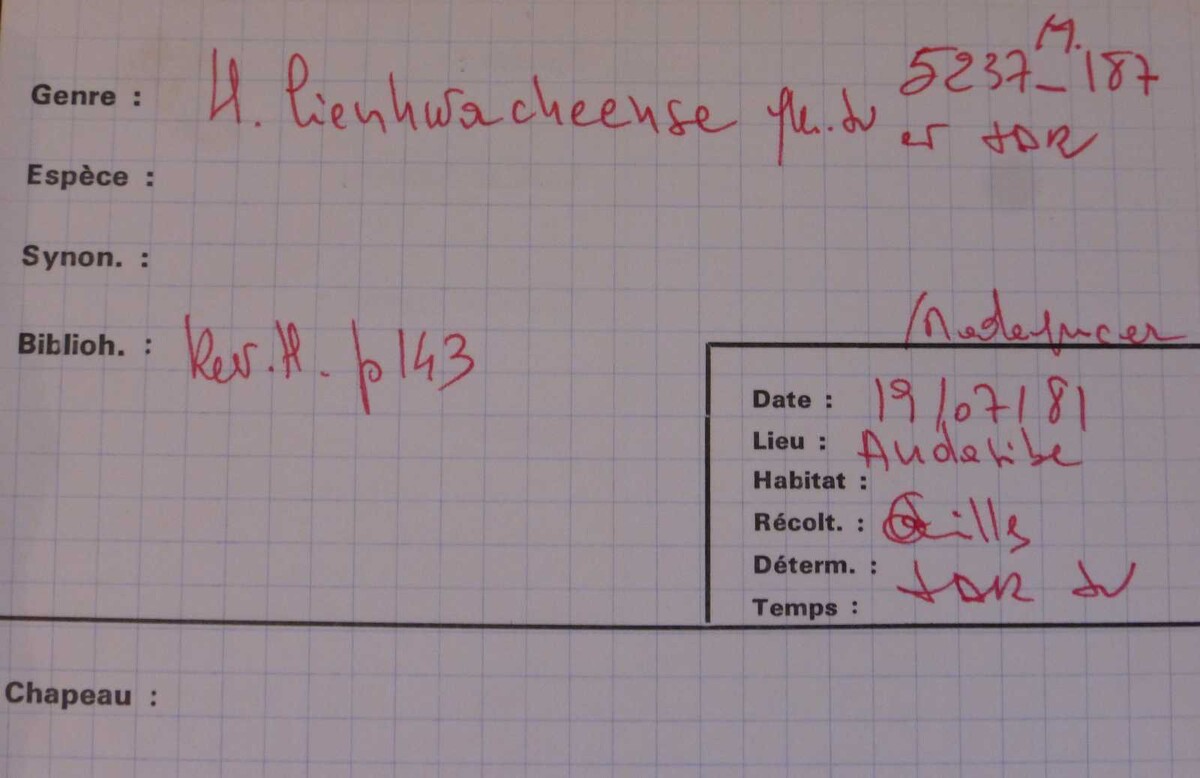 M.
Genre : H. lienhwacheense 5237_187
et JDR
Espèce :
Synon. :
Biblioh. : Rev. H. p 143
Madagascar
Date : 19/07/81
Lieu : Andasibe
Habitat :
Récolt. : Gilles
Déterm. : JDR
Temps :
Chapeau :